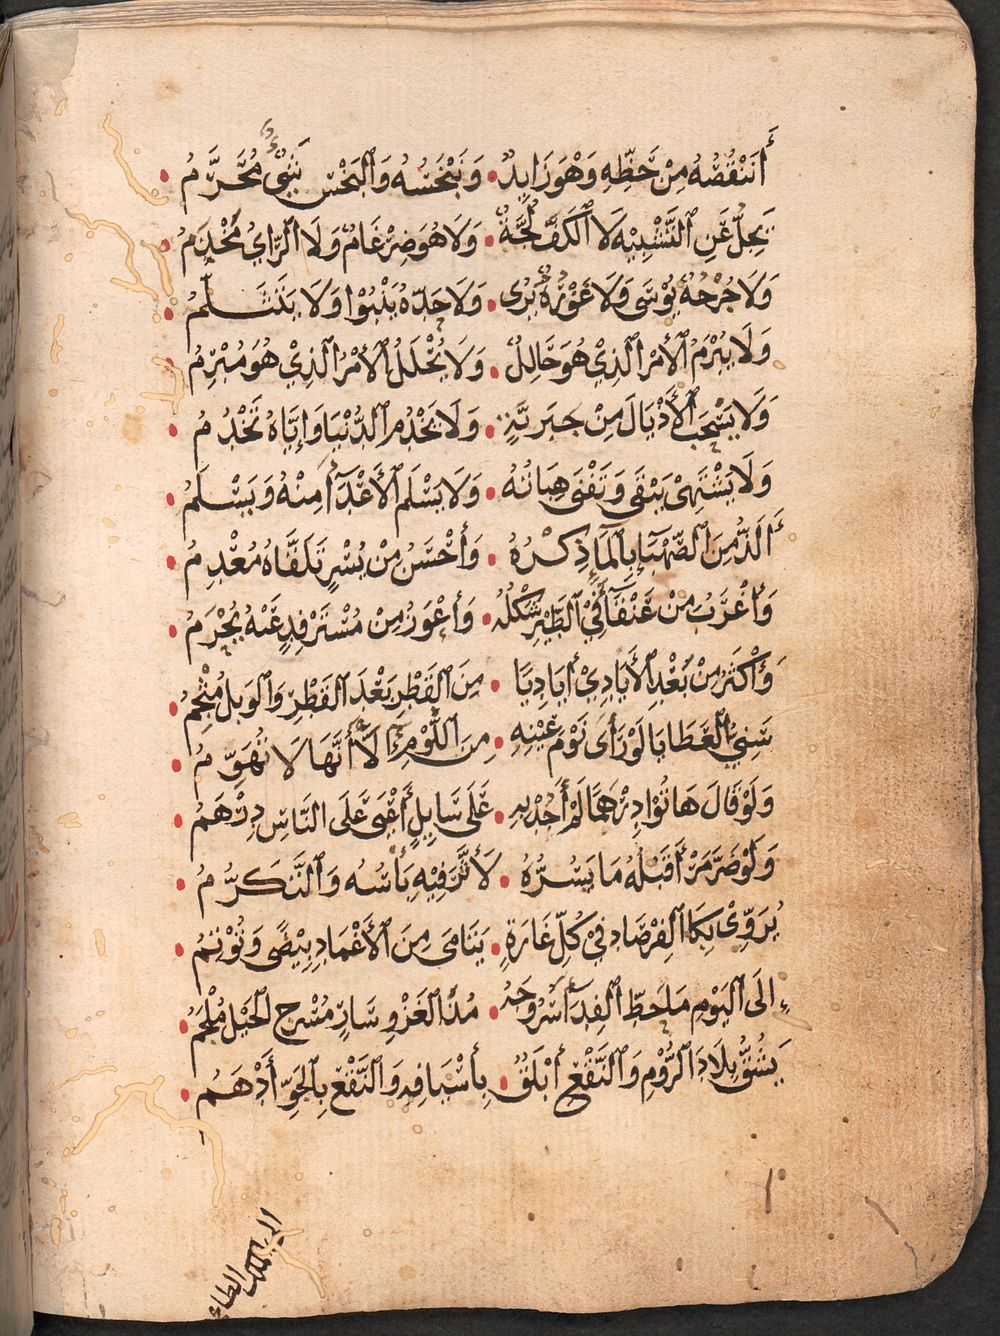 أَنَنْقُصُهُ مِنْ حَظِّهِ وَهْوَ زَايِدٌ • وَنَبْخَسُهُ وَالبَخْسُ شَيْءٌ مُحَرَّمُ •
يَجِلُّ عَنِ التَّشْبِيْهِ لَا الكَفُّ لُجَّةٌ • وَلَا هُوَ ضِرْغَامٌ وَلَا الرَّايُ مِخْذَمُ •
وَلَا جُرْحُهُ يُوْسَى وَلَا غَوْرُهُ يُرَى • وَلَا حَدُّهُ يَنْبُوا وَلَا يَتَثَلَّمُ •
وَلَا يُبْرَمُ الأَمْرُ الَّذِيْ هُوَ حَالِلٌ • وَلَا يُحْلَلُ الأَمْرُ الَّذِيْ هُوَ مُبْرِمُ •
وَلَا يَسْحَبُ الأَذْيَالَ مِنْ جَبَرِيَّةٍ • وَلَا يَخْدُمُ الدُّنْيَا وَإِيَّاهُ تَخْدُمُ •
وَلَا يَشْتَهِيْ يَبْقَى وَتَفْنَى هِبَاتُهُ • وَلَا يَسْلَمُ الأَعْدَآءُ مِنْهُ وَيَسْلَمُ •
أَلَذُّ مِنَ الصَّهْبَآءِ بِالمَآءِ ذِكْرُهُ • وَأَحْسَنُ مِنْ يُسْرٍ تَلَقَّاهُ مُعْدِمُ •
وَأَغْرَبُ مِنْ عَنْقَآءَ فِي الطَّيْرِ شَكْلُهُ • وَأَعْوَزُ مِنْ مُسْتَرْفِدٍ عَنْهُ يُحْرَمُ •
وَأَكْثَرُ مِنْ بَعْدِ الأَيَادِيْ أَيَادِيًا • مِنَ القَطْرِ بَعْدَ القَطْرِ وَالوَبْلُ مُثْجِمُ •
سَنِيُّ العَطَايَا لَوْ رَأَى نَوْمَ عَيْنِهِ • مِنَ اللُّؤْمِ آلَا أَنَّهَا لَا تُهَوِّمُ •
وَلَوْ قَالَ هَاتُوا دِرْهَمًا لَمْ أَجُدْ بِهِ • عَلَى سَايِلٍ أَعْيَى عَلَى النَّاسِ دِرْهَمُ •
وَلَوْ ضَرَّ مَرْأً قَبْلَهُ مَا يَسُرُّهُ • لَأَثَّرَ فِيْهِ بَأْسُهُ وَالتَّكَرُّمُ •
يُرَوِّيْ بِكَالفِرْصَادِ فِيْ كُلِّ غَارَةٍ • يَتَامَى مِنَ الأَغْمَادِ بِيْضًى وَتُوْتِمُ •
إِلَى اليَوْمِ مَا حَطَّ الفِدَآءُ سُرُوْجَهُ • مُذُ الغَزْوِ سَارٍ مُسْرِجُ الخَيْلِ مُلْجِمُ •
يَشُقُّ بِلَادَ الرُّوْمِ وَالنَّقْعُ أَبْلَقٌ • بِأَسْيَافِهِ وَالنَّقْعُ بِالجَوِّ أَدْهَمُ •
إلى الملك الطا